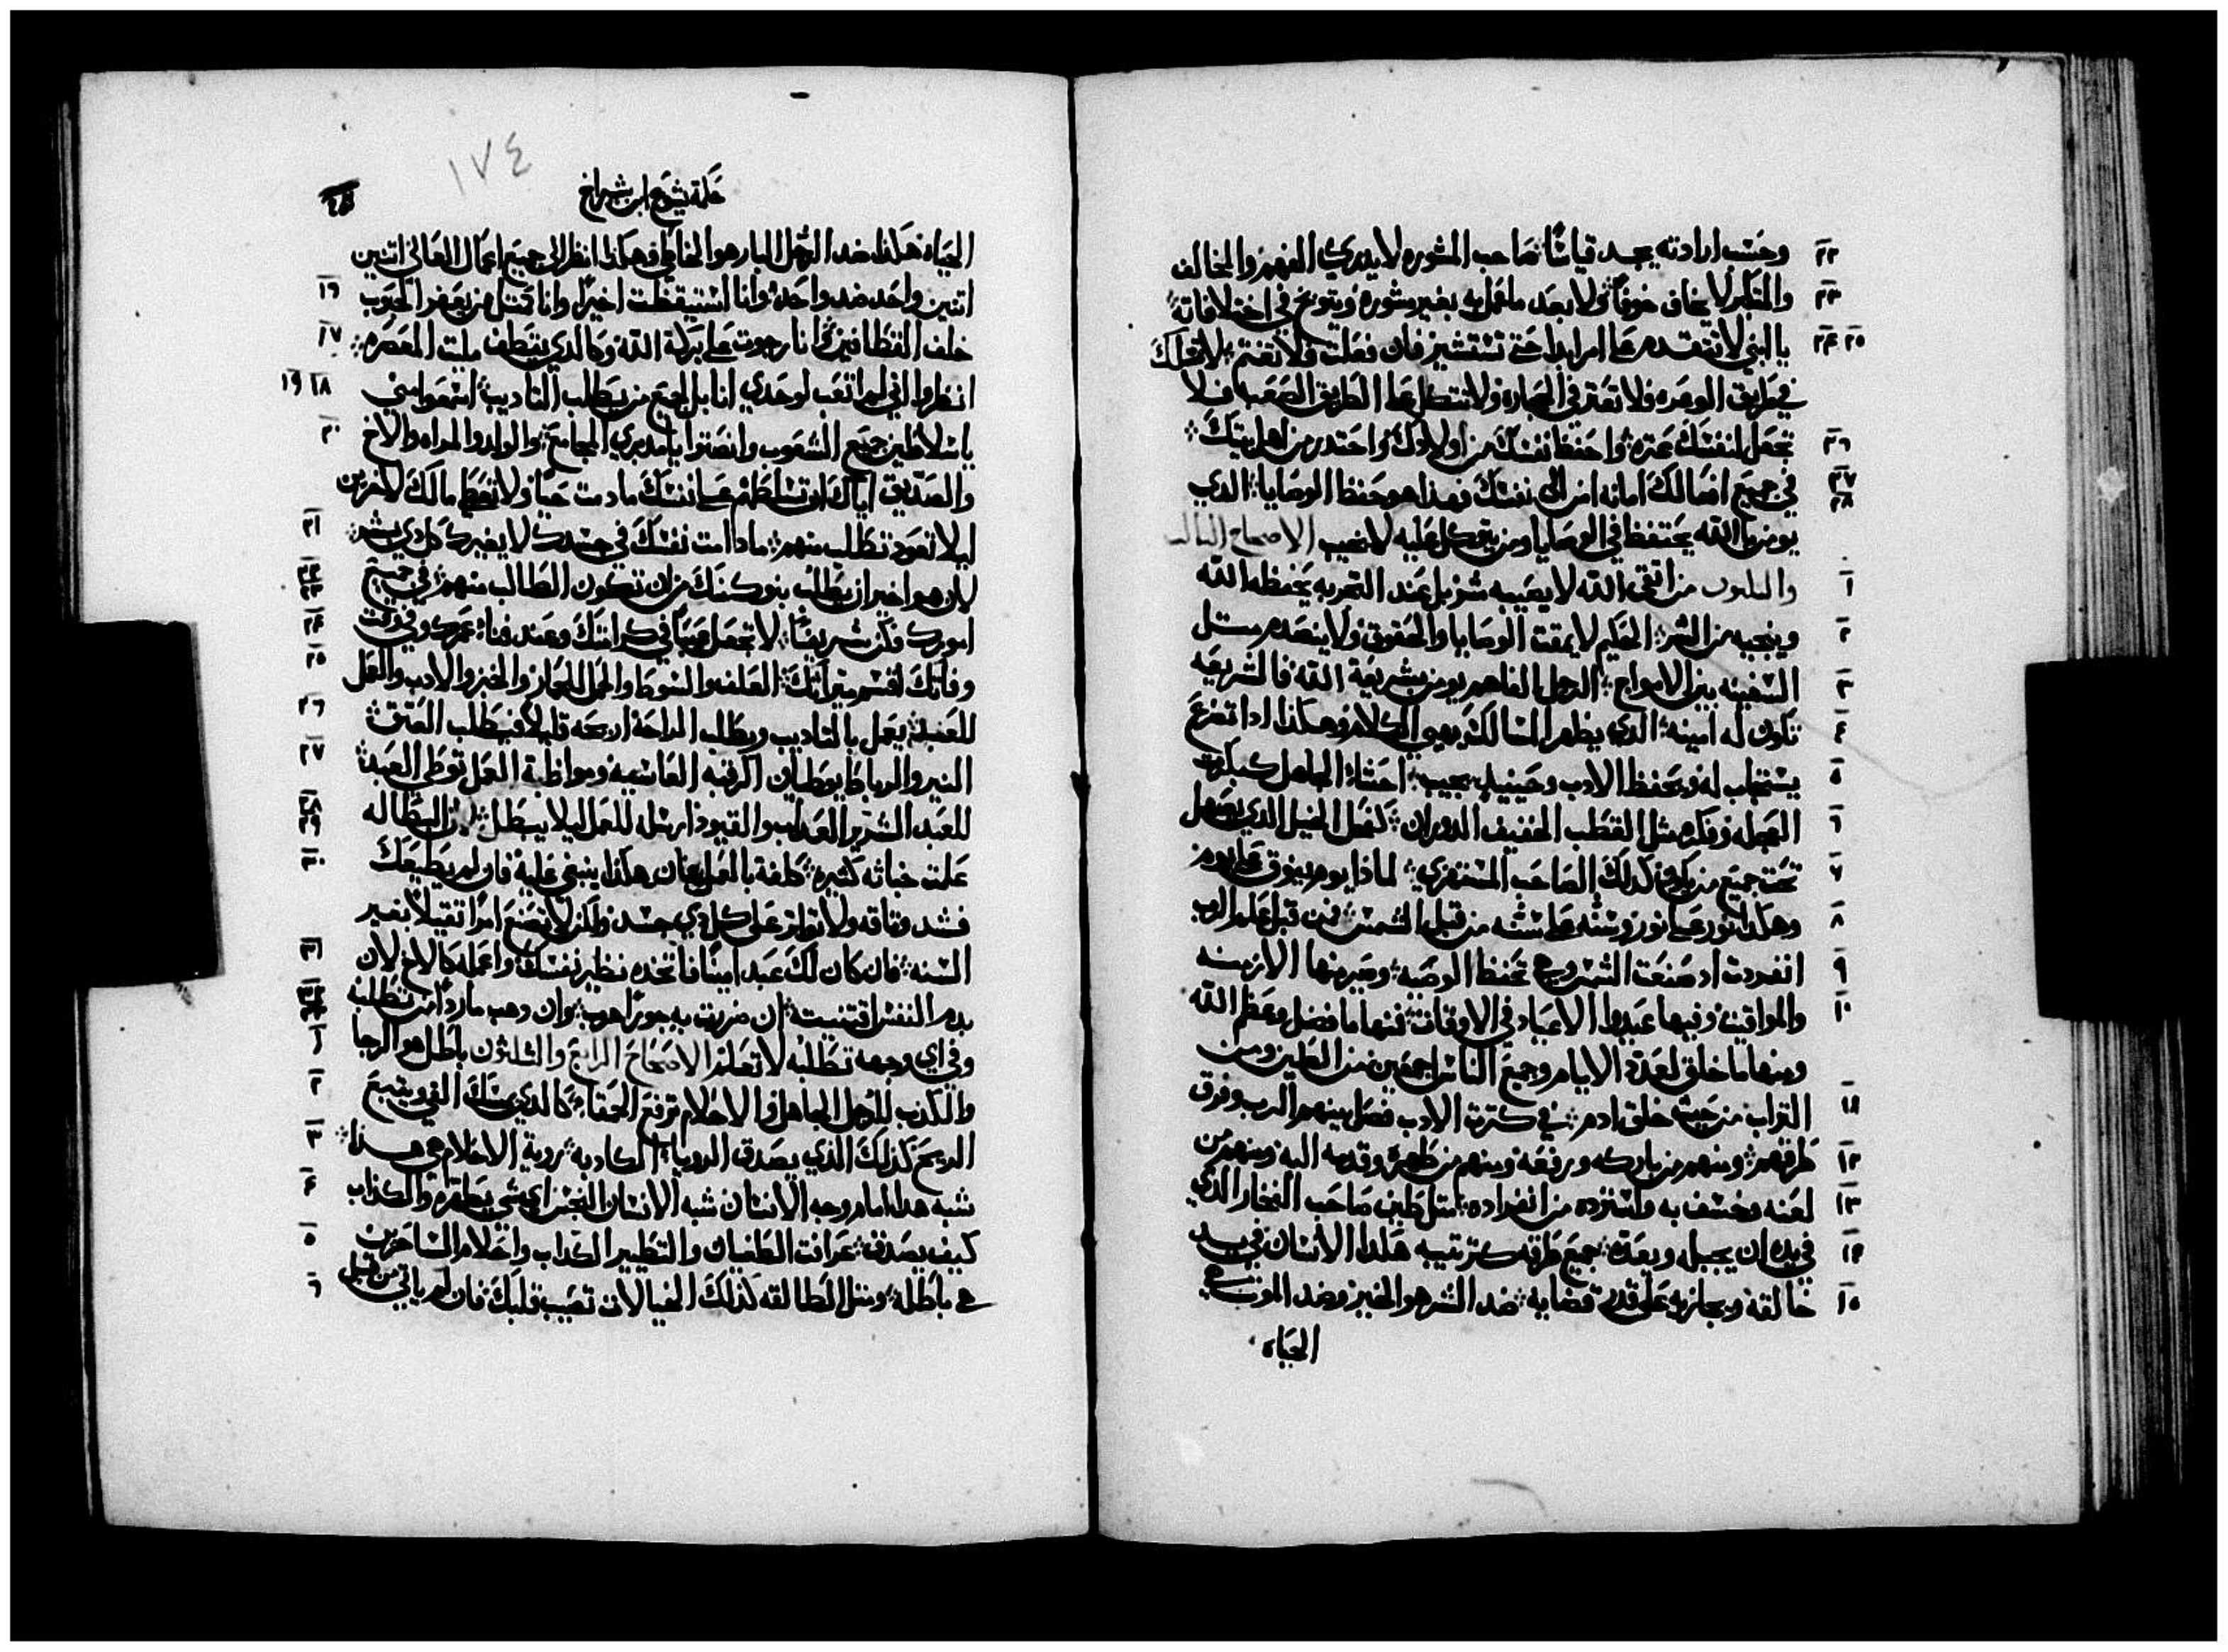 ٢٢ وحسب ارادته يجد قياسًا صاحب المشوره لا يبدي الفهم والمخالف
٢٣ والمتكبر لا يخاف خوفًا ولا بعد ما عمل به بغير مشوره ويتوبخ في اختلافاته
٢٤ ٢٥ يا ابني لا تتقدم على امر ابدا حتى تستشير فان فعلت فلا تغتم لا تسلك
في طريق الوعره فلا تعتر في الحجاره ولا تتكل على الطريق الصعب فلا
٢٦ تجعل لنفسك عتره واحفظ نفسك من اولادك واحتدر من اهل بيتك
٢٧ ٢٨ في جميع افعالك امانه امن الى نفسك فهذا هو حفظ الوصايا الدي
يومن بالله يحتفظ في الوصايا ومن يتوكل عليه لا يخيب الاصحاح التالت
١ والتلتون من اتقى الله لا يصيبه شر بل عند التجربه يحفظه الله
٢ وينجيه من الشر الحكيم لا يمقت الوصايا والحقوق ولا ينصدم متل
٣ السفينه بين الامواج الرجل الفاهم يومن بشريعة الله فالشريعه
٤ تكون له امينه الدي يظهر المسالك يهيي الكلام وهكذا ادا تضرع
٥ يستجاب له ويحفظ الادب وحينيد يجيب احشاء الجاهل كبكرت
٦ العجله وفكره مثل القطب الخفيف الدوران كفحل الخيل الدي يصهل
٧ تحت جميع من يركبه كدلك الصاحب المستهزي لماذا يوم يفوق على يوم
٨ وهكذا نور على نور وسنه على سنه من قبل الشمس فمن قبل علم الرب
٩ انفردت اد صنعت الشمس وهي تحفظ الوصيه وميز منها الازمنه
١٠ والمواقيت وفيها عيدوا الاعياد في الاوقات فمنها ما فضل وعظم الله
ومنها ما خلق لعدة الايام وجميع الناس اجمعين من الطين ومن
١١ التراب من حيث خلق ادم في كترت الادب فصل بينهم الرب وفرق
١٢ طرقهم ومنهم من باركه ورفعه ومنهم من طهره وقدمه اليه ومنهم من
١٣ لعنه وخسف به واسترده من انفراده متل طين صاحب الفخار الدي
١٤ في يده ان يجبله ويعده جميع طرقه كترتيبه هكدا الانسان في يد
١٥ خالقه ويجازيه على قدر قضايه ضد الشر هو الخير وضد الموت هي
الحياه
١٧٤
حكمة يشوع ابن شيراخ
الحياه هكذا ضد الرجل البار هو الخاطي فهكذا انظر الى جميع اعمال العالي اتنين
١٦ اتنين واحد ضد واحد وانا استيقظت اخيرًا وانا كمتل من يعفر الحبوب
١٧ خلف القطافين انا رجوت على بركة الله وكالدي يقطف مليت المعصره
١٨ ١٩ انظروا اني لم اتعب لوحدي انا بل لجميع من يطلب التاديب اسمعوا مني
٢٠ يا سلاطين جميع الشعوب وانصتوا يا مدبري المجامع والولد والمراه والاخ
والصديق اياك ان تسلطهم على نفسك ما دمت حيًا ولا تعط مالك لاخرين
٢١ ليلا تعود تطلب منهم ما دامت نفسك في جسدك لا يغيرك كل دي بشر
٢٢ ٢٣ لان هو اخير ان يطلب بنوك منك من ان تكون الطالب منهم في جميع
٢٤ امورك وكن شريفًا لا تجعل عيبًا في كرامتك وعند فناء عمرك وفي وقت
٢٥ وفاتك اقسم ميراتك العلف والسوط والحمل للحمار والخبز والادب والعمل
٢٦ للعبد يعمل بالتاديب ويطلب الراحة ارخ له قليلًا فيطلب العتق
٢٧ النير والرباط يوطيان الرقبه القاسيه ومواظبة العمل توطي العبد
٢٨ ٢٩ للعبد الشرير العداب والقيود ارسله للعمل ليلا يبطل لان البطاله
٣٠ علمت خباته كتيره كلفه بالعمل فان هكذا ينبغي عليه فان لم يطيعك
فشد وتاقه ولا تواتر على كل دي جسد ولكن لا تصنع امرًا تقيلًا بغير
٣١ السنه فان كان لك عبد امينًا فاتخده نظير نفسك واعمله كالاخ لان
٣٢ ٣٣ بدم النفس اقتنيته ان ضربت به جورًا هرب وان وهب ماردًا من تطلبه
١ وفي اي وجهه تطلبه لا تعلم الاصحاح الرابع والتلتون باطل هو الرجا
٢ والكدب للرجل الجاهل والاحلام ترفع الحمقاء كالدي يمسك الفي ويتبع
٣ الريح كذلك الذي يصدق الرويا الكادبه روية الاحلام هي هذا
٤ شبه هدا امام وجه الانسان شبه الانسان النجس اي شي يطهره والكذاب
٥ كيف يصدق عرافت الطغيان والتطيير الكداب واحلام الساحرين
٦ هي باطله ومتل الطالقه كذلك الخيالات تصيب قلبك فان لم ياتي من قبل